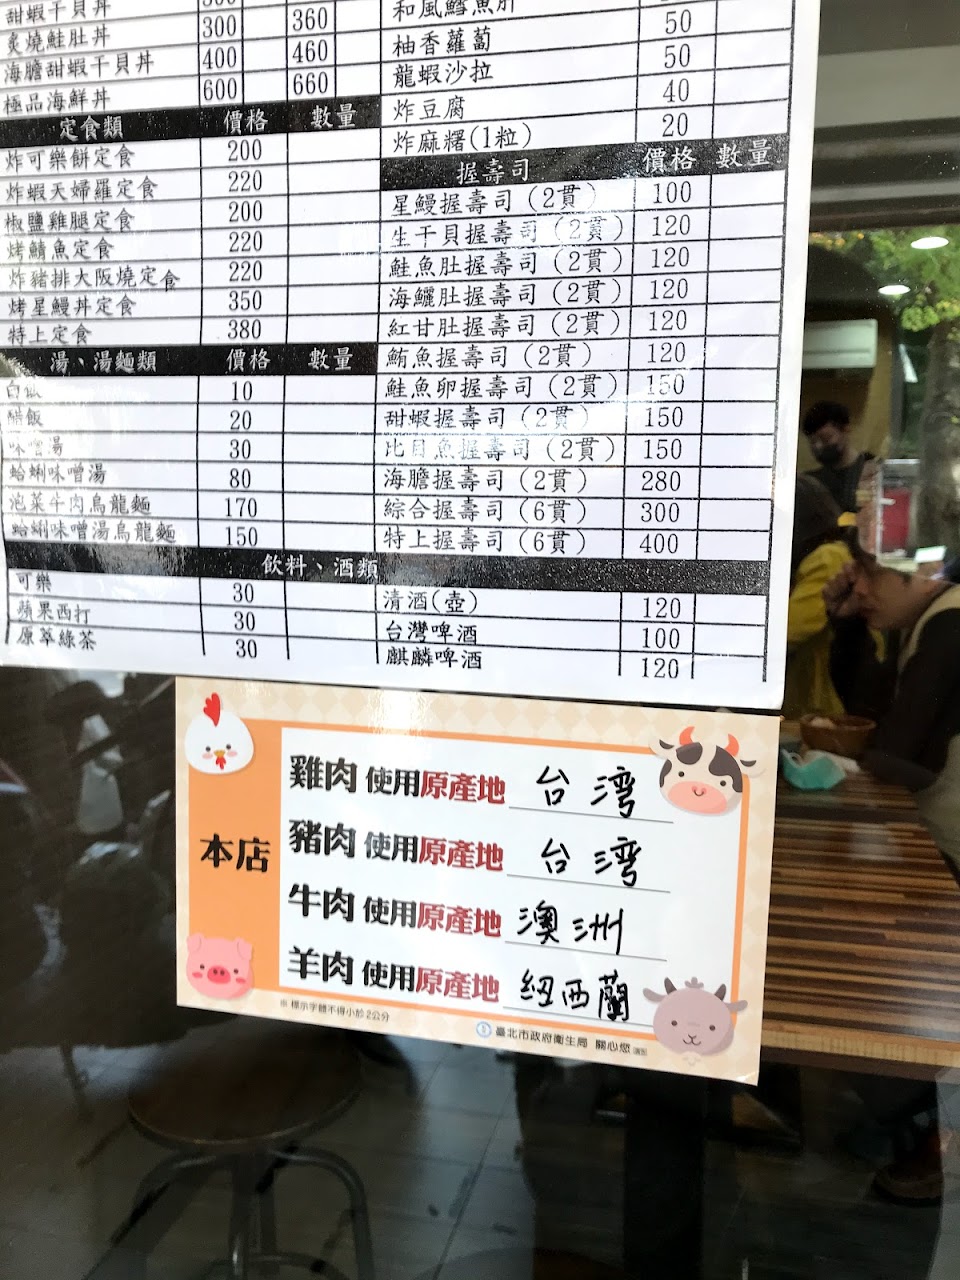 甜蝦干貝丼 300 360
炙燒鮭肚丼 300 360
海膽甜蝦干貝丼 400 460
極品海鮮丼 600 660
定食類 價格 數量
炸可樂餅定食 200
炸蝦天婦羅定食 220
椒鹽雞腿定食 200
烤鯖魚定食 220
炸豬排大阪燒定食 220
烤星鰻丼定食 350
特上定食 380
湯、湯麵類 價格 數量
白飯 10
醋飯 20
味噌湯 30
蛤蜊味噌湯 80
泡菜牛肉烏龍麵 170
蛤蜊味噌湯烏龍麵 150
和風鱈魚肝
柚香蘿蔔 50
龍蝦沙拉 50
炸豆腐 40
炸麻糬(1粒) 20
握壽司 價格 數量
星鰻握壽司(2貫) 100
生干貝握壽司(2貫) 120
鮭魚肚握壽司(2貫) 120
海鱺肚握壽司(2貫) 120
紅甘肚握壽司(2貫) 120
鮪魚握壽司(2貫) 120
鮭魚卵握壽司(2貫) 150
甜蝦握壽司(2貫) 150
比目魚握壽司(2貫) 150
海膽握壽司(2貫) 280
綜合握壽司(6貫) 300
特上握壽司(6貫) 400
飲料、酒類
可樂 30
蘋果西打 30
原萃綠茶 30
清酒(壺) 120
台灣啤酒 100
麒麟啤酒 120
本店
雞肉使用原產地 台湾
豬肉使用原產地 台湾
牛肉使用原產地 澳洲
羊肉使用原產地 紐西蘭
※ 標示字體不得小於2公分
臺北市政府衛生局 關心您